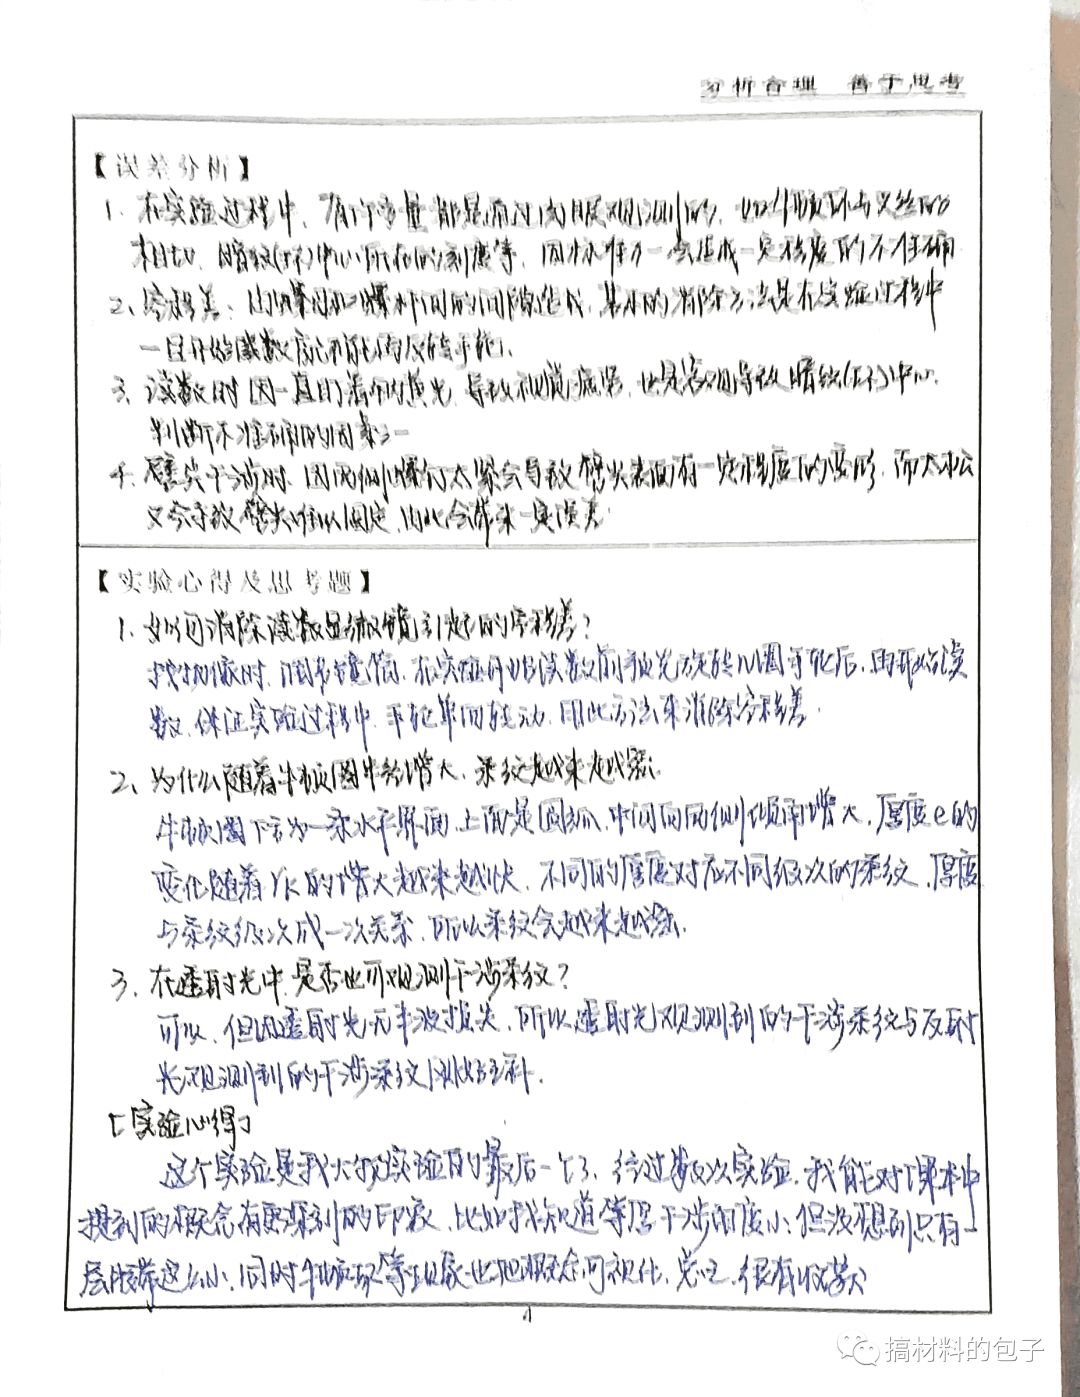 分析合理 善于思考
【误差分析】
1. 在实验过程中,有许多量都是通过肉眼观测的,如牛顿环与叉丝的
相切、暗纹(环)中心所在的刻度等,因标准不一会造成一定程度的不准确
2、空程差:由螺母和螺杆间的间隙造成,基本的消除方法是在实验过程中
一旦开始读数
3、读数时因一直盯着的黄光,导致视觉疲劳,也是容易导致暗纹(环)中心
判断不准确的因素之一
4. 劈尖干涉时,因两侧螺钉太紧会导致劈尖表面有一定程度的变形,而太松
又会导致劈尖难以固定,因此会带来一定误差
【实验心得及思考题】
1. 如何消除读数显微镜引起的空程差?
找物像时,调节镜筒,在实验开始读数前预先旋转几圈手轮后,再开始读
数,保证实验过程中,手轮单向转动,用此方法来消除空程差.
2、为什么随着牛顿圈半径增大,条纹越来越密;
牛顿圈下方为一条水平界面,上面是圆弧,中间向两侧倾角增大,厚度e的
变化随着rk的增大越来越快,不同的厚度对应不同级次的条纹,厚度
与条纹级次成一次关系,所以条纹会越来越密.
3、在透射光中,是否也可观测干涉条纹?
可以,但因透射光无半波损失,所以透射光观测到的干涉条纹与反射
光观测到的干涉条纹
[实验心得]
这个实验是我大物实验的最后一个了,经过数次实验,我能对课本中
提到的概念有更深刻的印象,比如我知道等厚干涉的厚度小,但没想到只有一
层胶带这么小,同时牛顿环等现象也把概念可视化,总之,很有收获
4
搞材料的包子